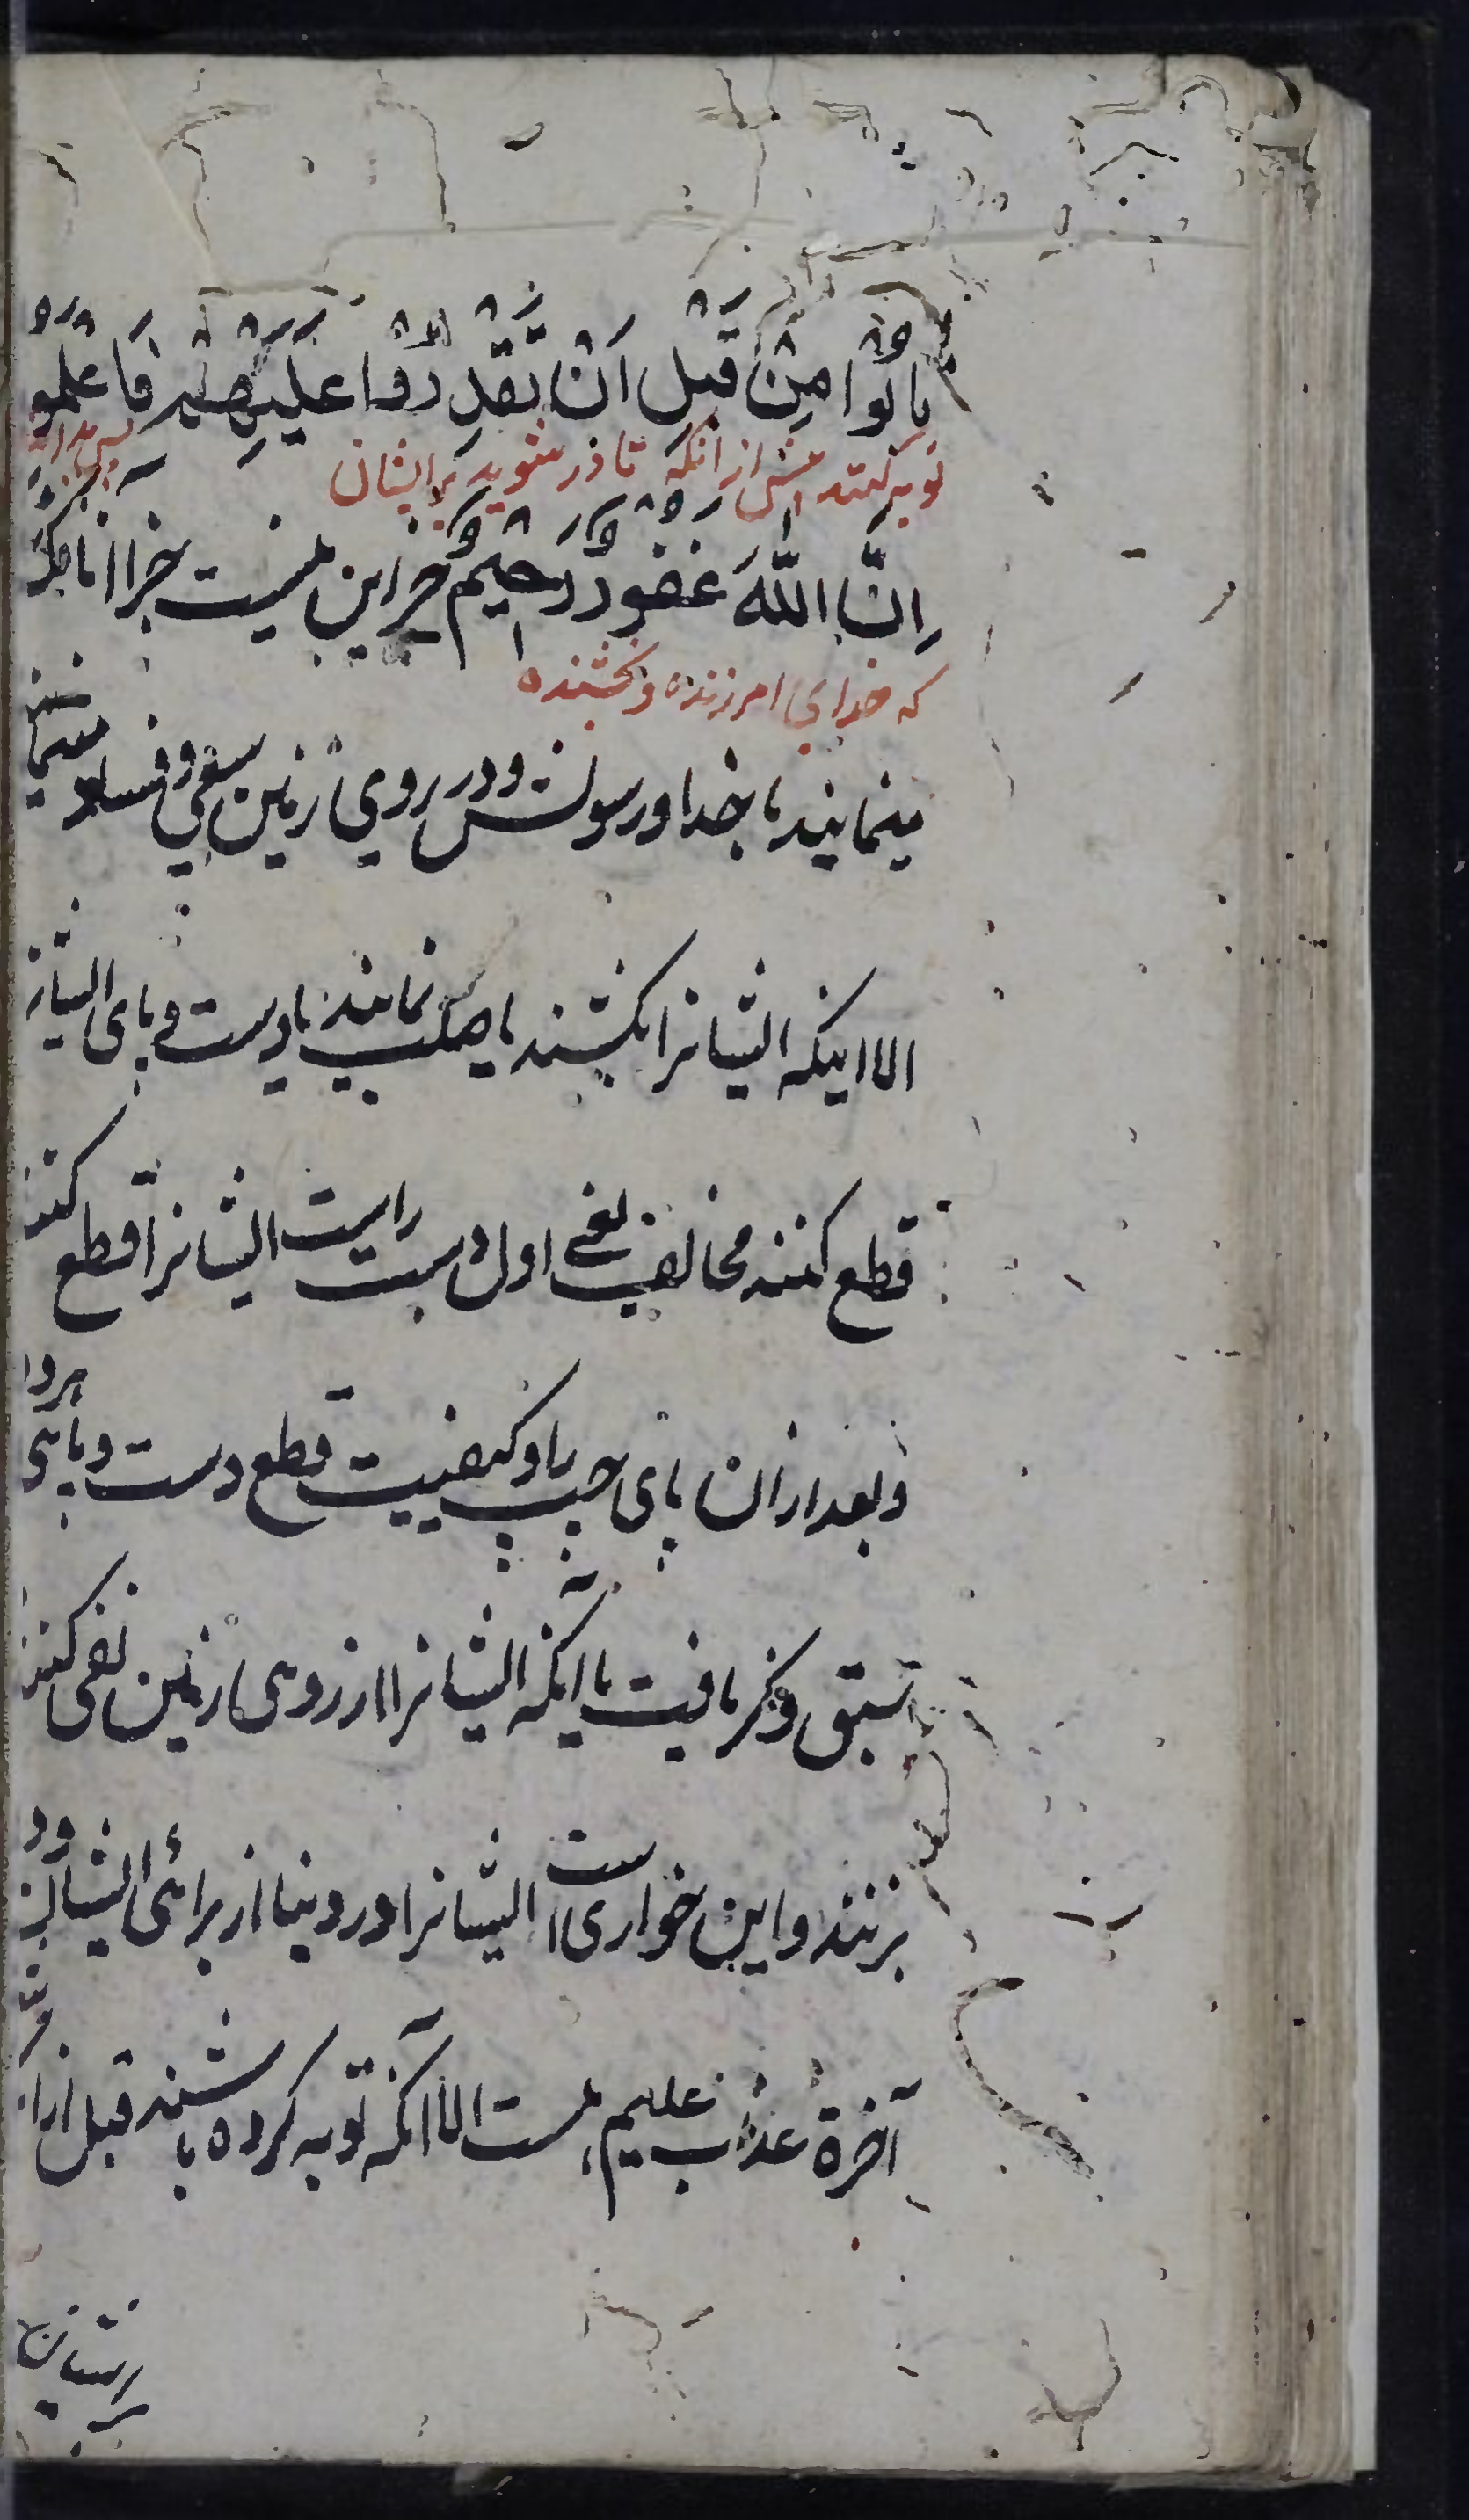 تابُوا مِنْ قَبْلِ اَنْ تَقْدِرُوا عَلَيْهِمْ فَاعْلَمُوا
توبه کنند پیش از انکه قادر شوید بر ایشان پس بدانید
اِنَّ اللّهَ غَفُورٌ رَحِيمٌ جز این نیست جزا انانکه
که خدای امرزنده و بخشنده
مینمایند با خدا و رسولش و در روی زمین سعی و فساد مینمایند
الا اینکه ایشانرا بکشند یا صلب نمایند یا دست و پای ایشانرا
قطع کنند مخالف یعنی اول دست راست ایشانرا قطع کنند
و بعد از ان پای چپ را و کیفیت قطع دست و پای
سبق ذکر یافت یا آنکه ایشانرا از روی زمین نفی کنند
بزنند و این خواری است ایشانرا در دنیا از برای ایشان و در
آخرة عذاب علیم است الا آنکه توبه کرده باشند قبل از
بر ایشان